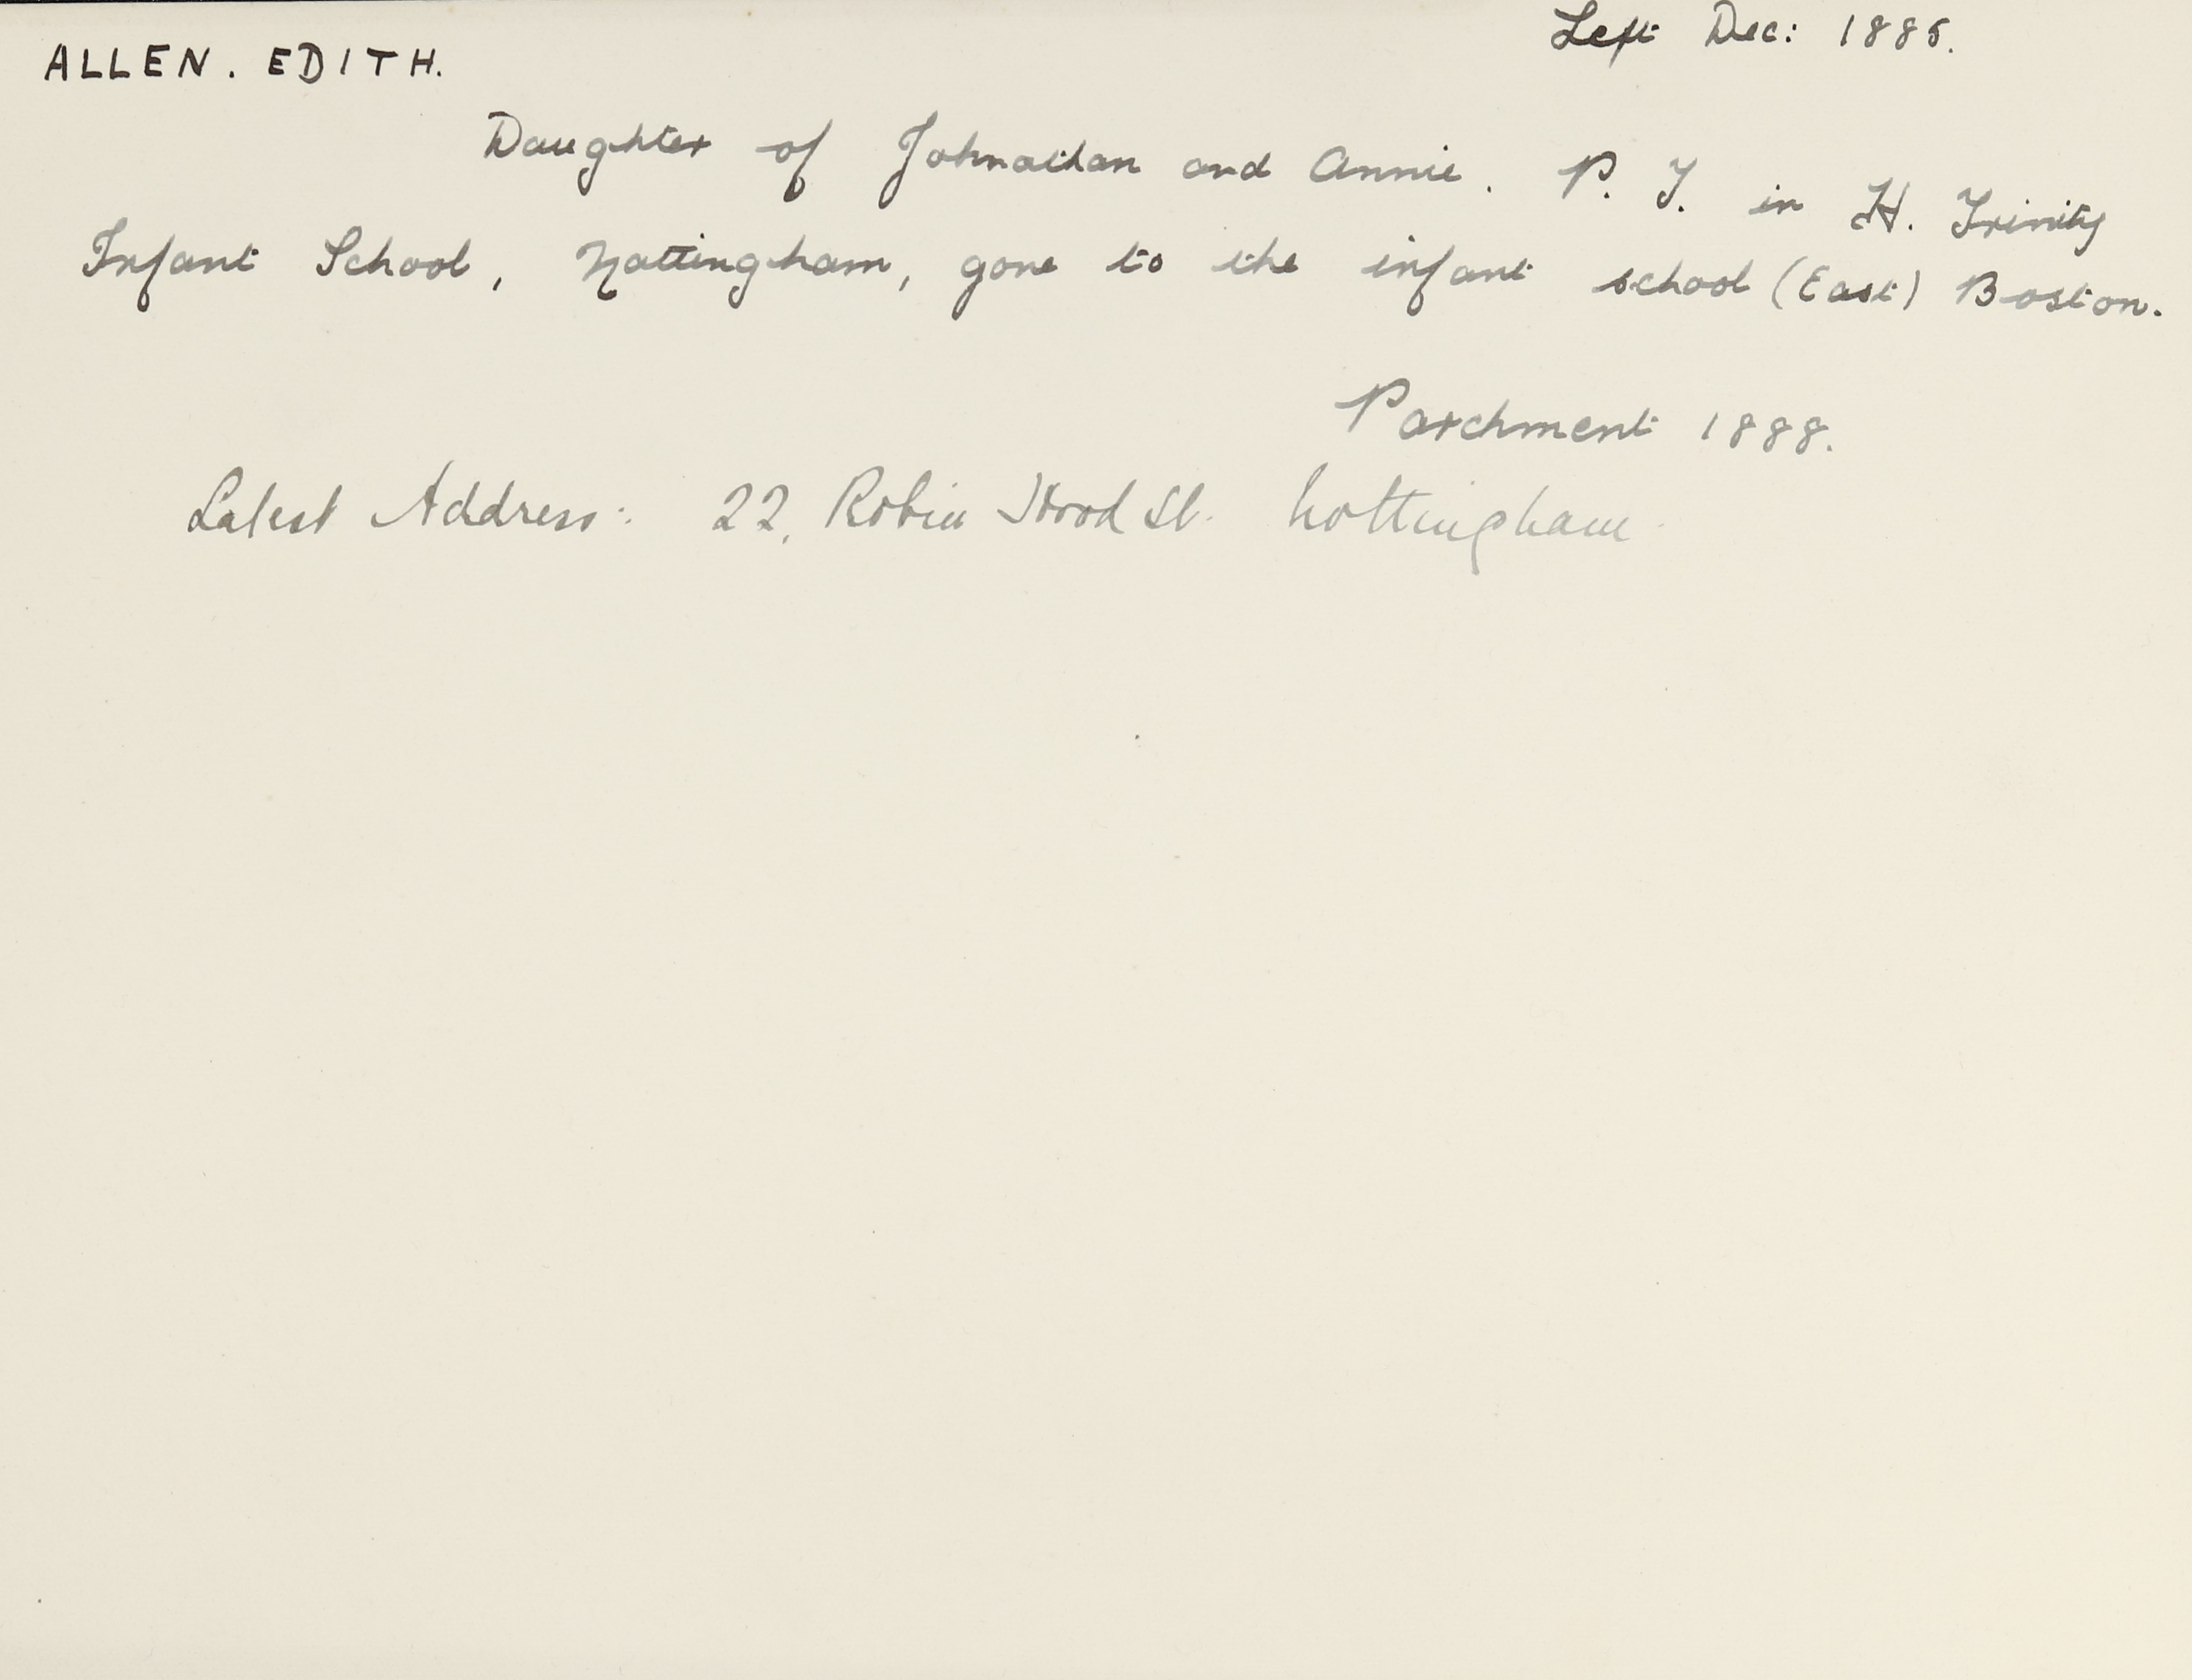 ALLEN. EDITH.
Left Dec: 1885.
Daughter of Johnathan and Annie. P. T. in H. Trinity
Infant School, Nottingham, gone to the infant school (East) Boston.
Parchment 1888.
Latest Address: 22, Robin Hood St. Nottingham